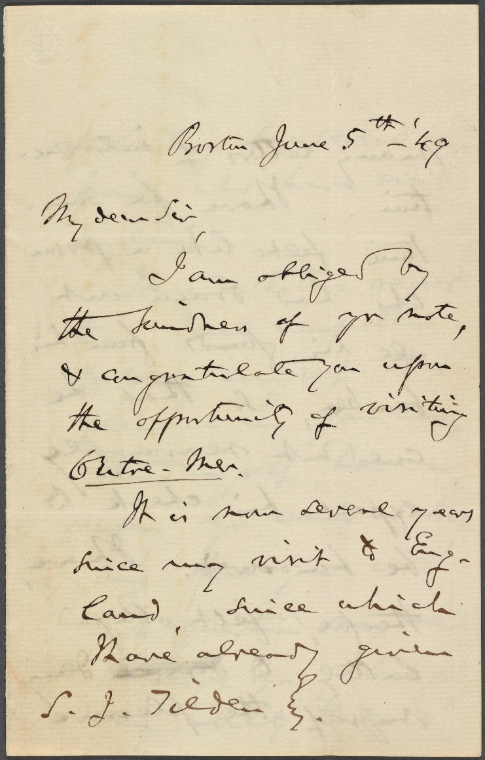 Boston June 5th - '49
My dear Sir,
I am obliged by
the kindness of yr note,
& congratulate you upon
the opportunity of visiting
Outre-Mer.
It is now several years
since my visit to Eng-
land, since which
I have already given
S. J. Tilden Esq.